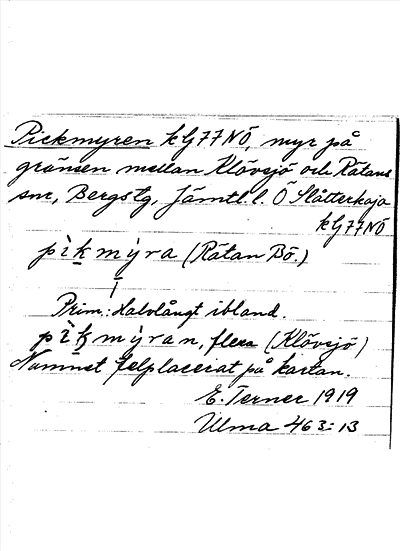 Pickmyren kG77NÖ, myr på
gränsen mellan Klövsjö och Rätans
snr, Bergs tg, Jämtl. l. Ö Slåtterkoja
kG77NÖ
pìk mỳra (Rätan Bö.)
Prim.: Halvlångt ibland.
pìk mỳran, flera (Klövsjö)
Namnet felplacerat på kartan.
E. Terner 1919
Ulma 463:13